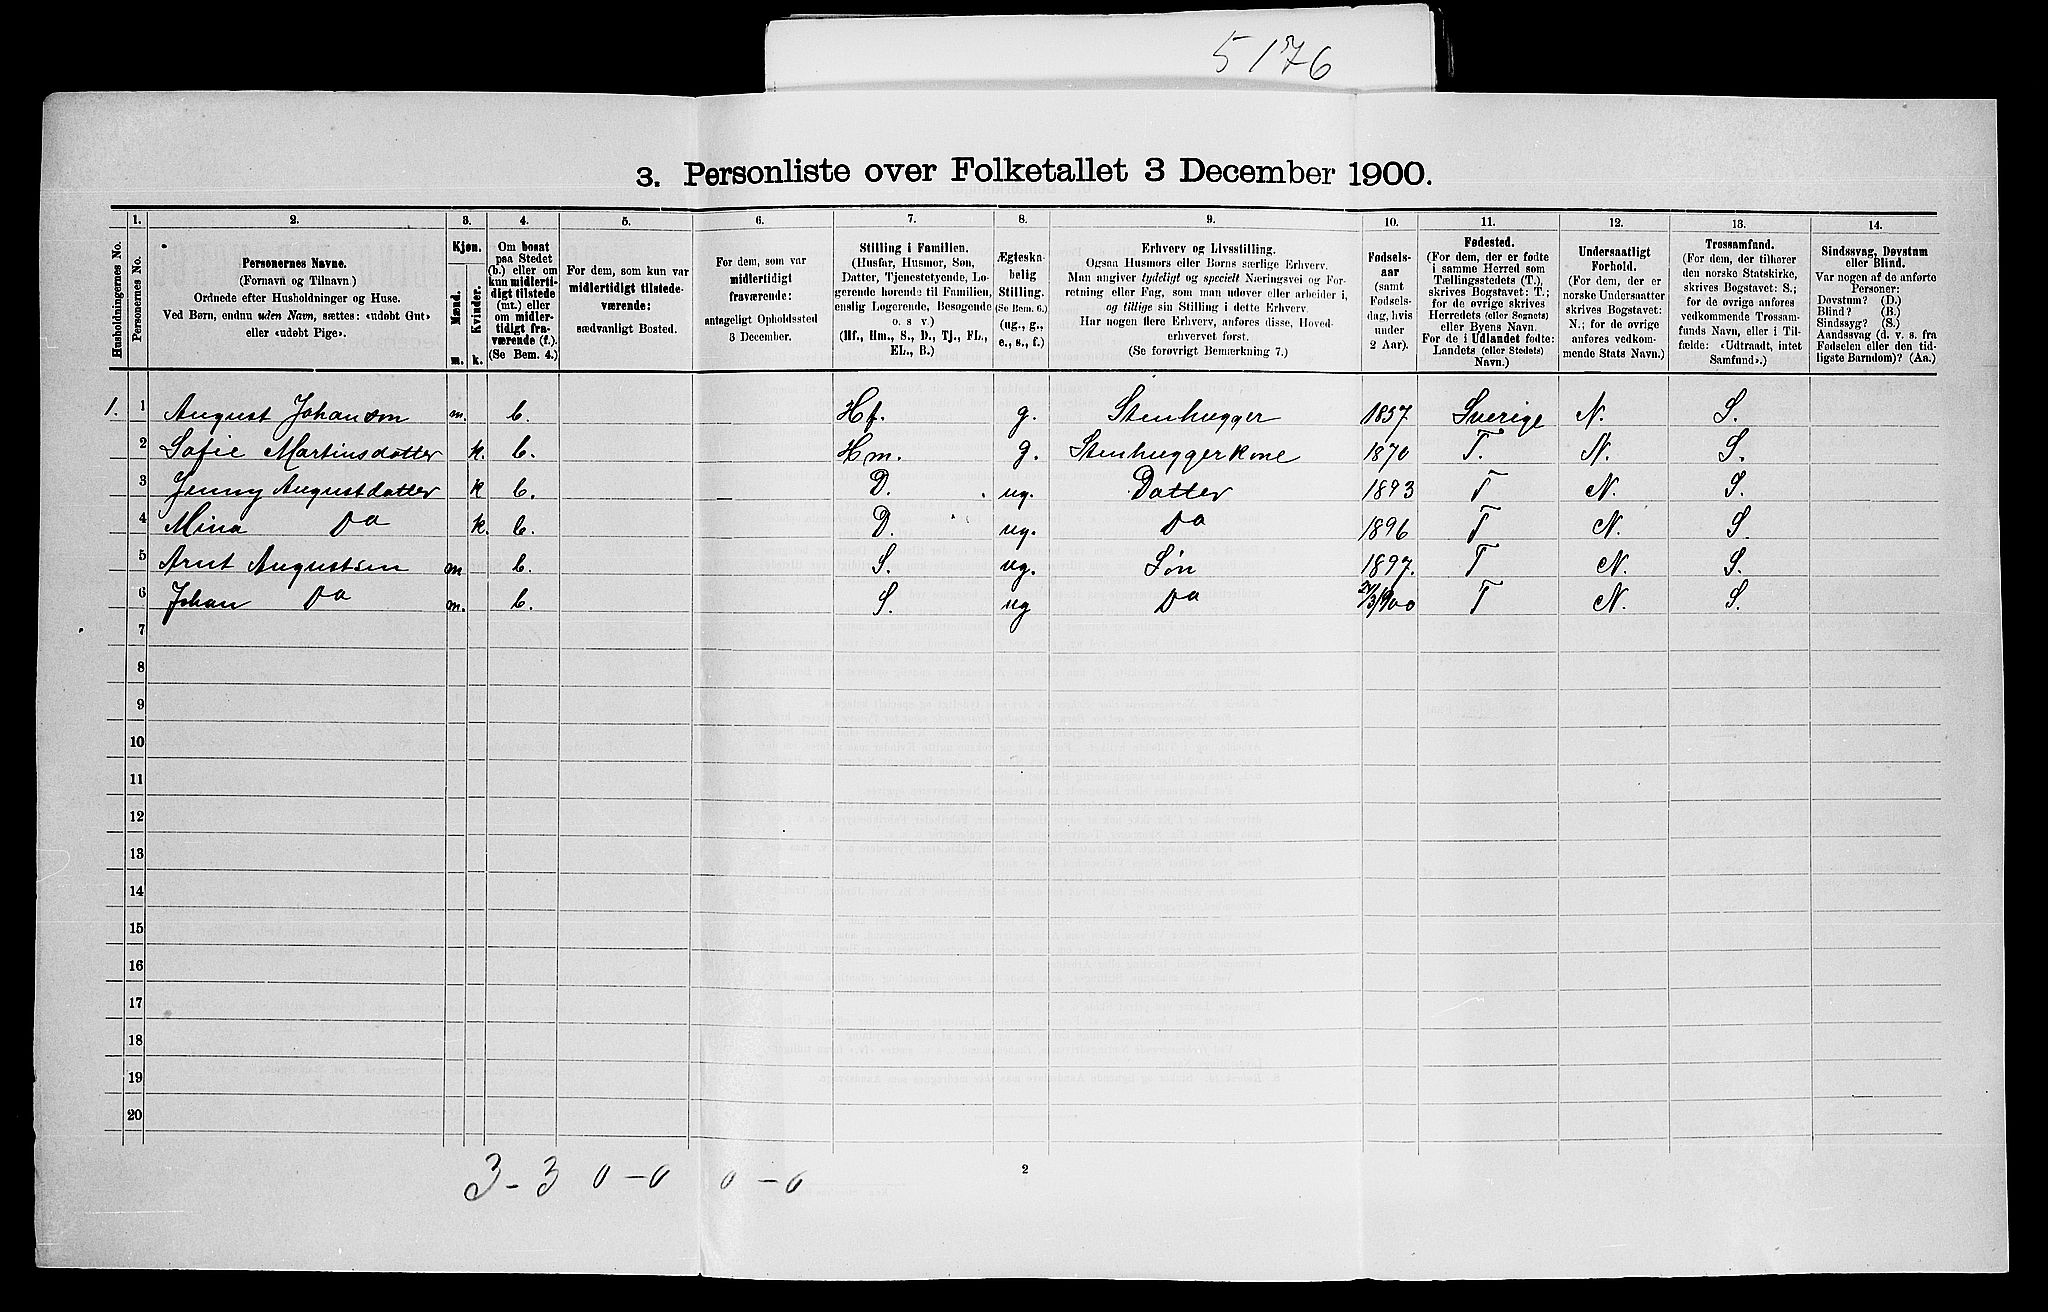 5176
3. Personliste over Folketallet 3 December 1900.
Husholdningernes No.
1.
Personernes No.
2.
Personernes Navne.
(Fornavn og Tilnavn.)
Ordnede efter Husholdninger og Huse.
Ved Børn, endnu uden Navn, sættes: «udøbt Gut»
eller «udøbt Pige».
3.
Kjøn.
Mænd.
Kvinder.
m. k.
4.
Om bosat
paa Stedet
(b.) eller om
kun midler-
tidigt tilstede
(mt.) eller
om midler-
tidigt fra-
værende (f.).
(Se Bem. 4.)
5.
For dem, som kun var
midlertidigt tilstede-
værende:
sædvanligt Bosted.
6.
For dem, som var
midlertidigt
fraværende:
antageligt Opholdssted
3 December.
7.
Stilling i Familien.
(Husfar, Husmor, Søn,
Datter, Tjenestetyende, Lo-
gerende hørende til Familien,
enslig Logerende, Besøgende
o. s v.)
(Hf., Hm., S., D., Tj., FL.,
EL., B.)
8.
Ægteska-
belig
Stilling.
(Se Bem. 6.)
(ug., g.,
e., s., f.)
9.
Erhverv og Livsstilling.
Ogsaa Husmors eller Børns særlige Erhverv.
Man angiver tydeligt og specielt Næringsvei og For-
retning eller Fag, som man udøver eller arbeider i,
og tillige sin Stilling i dette Erhverv.
Har nogen flere Erhverv, anføres disse, Hoved-
erhvervet først.
(Se forøvrigt Bemærkning 7.)
10.
Fødsels-
aar
(samt
Fødsels-
dag, hvis
under
2 Aar).
11.
Fødested.
(For dem, der er fødte
i samme Herred som
Tællingsstedets (T.),
skrives Bogstavet: T.;
for de øvrige skrives
Herredets (eller Sognets)
eller Byens Navn.
For de i Udlandet fødte:
Landets (eller Stedets)
Navn.)
12.
Undersaatligt
Forhold.
(For dem, der er
norske Undersaatter
skrives Bogstavet:
N.; for de øvrige
anføres vedkom-
mende Stats Navn.)
13.
Trossamfund.
(For dem, der tilhører
den norske Statskirke,
skrives Bogstavet: S.;
for de øvrige anføres
vedkommende Trossam-
funds Navn, eller i Til-
fælde: «Udtraadt, intet
Samfund».)
14.
Sindssvag, Døvstum
eller Blind.
Var nogen af de anførte
Personer:
Døvstum? (D.)
Blind? (B.)
Sindssyg? (S.)
Aandssvag (d. v. s. fra
Fødselen eller den tid-
ligste Barndom)? (Aa.)
1. 1 August Johanson m. b. Hf. g. Stenhugger 1857. Sverige N. S.
2 Sofie Martinsdatter k. b. Hm. g. Stenhuggerkone 1870 T. N. S.
3 Jenny Augustdatter k b. D. ug. Datter 1893 T N. S.
4 Mina Do k. b. D. ug. Do 1896 T N. S.
5 Arnt Augustsen m b. S. ug. Søn 1897. T N. S.
6 Johan Do m. b. S. ug Do /3/900 T N. S.
7
8
9
10
11
12
13
14
15
16
17
18
19
20
3 - 3 0 - 0 0 - 0
2